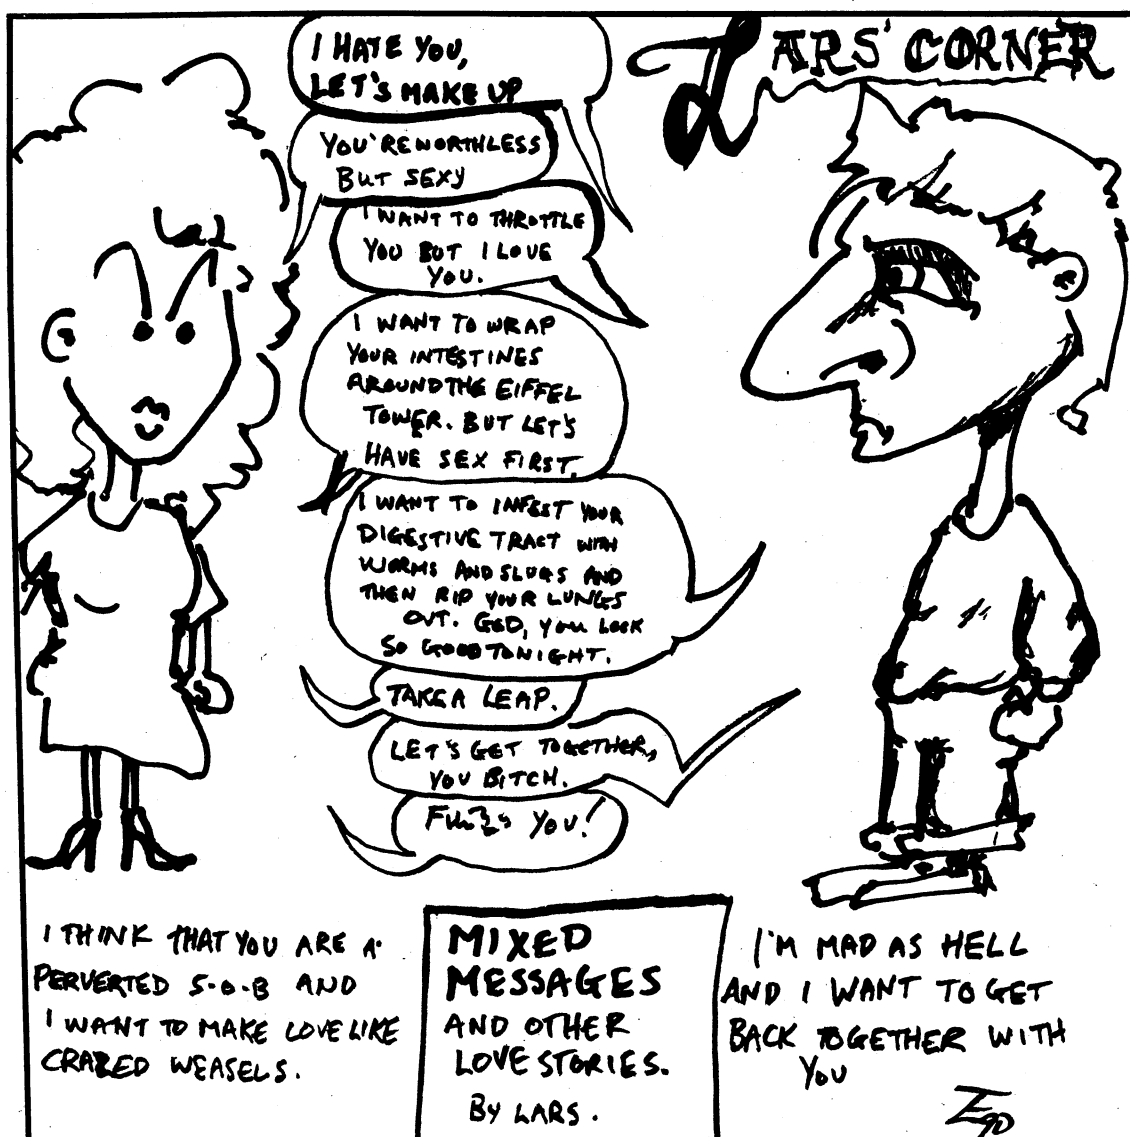 LARS' CORNER
I HATE YOU,
LET'S MAKE UP
YOU'RE WORTHLESS
BUT SEXY
I WANT TO THROTTLE
YOU BUT I LOVE
YOU.
I WANT TO WRAP
YOUR INTESTINES
AROUND THE EIFFEL
TOWER. BUT LET'S
HAVE SEX FIRST.
I WANT TO INFEST YOUR
DIGESTIVE TRACT WITH
WORMS AND SLUGS AND
THEN RIP YOUR LUNGS
OUT. GOD, YOU LOOK
SO GOOD TONIGHT.
TAKE A LEAP.
LET'S GET TOGETHER,
YOU BITCH.
YOU!
I THINK THAT YOU ARE A
PERVERTED S-O-B AND
I WANT TO MAKE LOVE LIKE
CRAZED WEASELS.
MIXED
MESSAGES
AND OTHER
LOVE STORIES.
BY LARS.
I'M MAD AS HELL
AND I WANT TO GET
BACK TOGETHER WITH
YOU